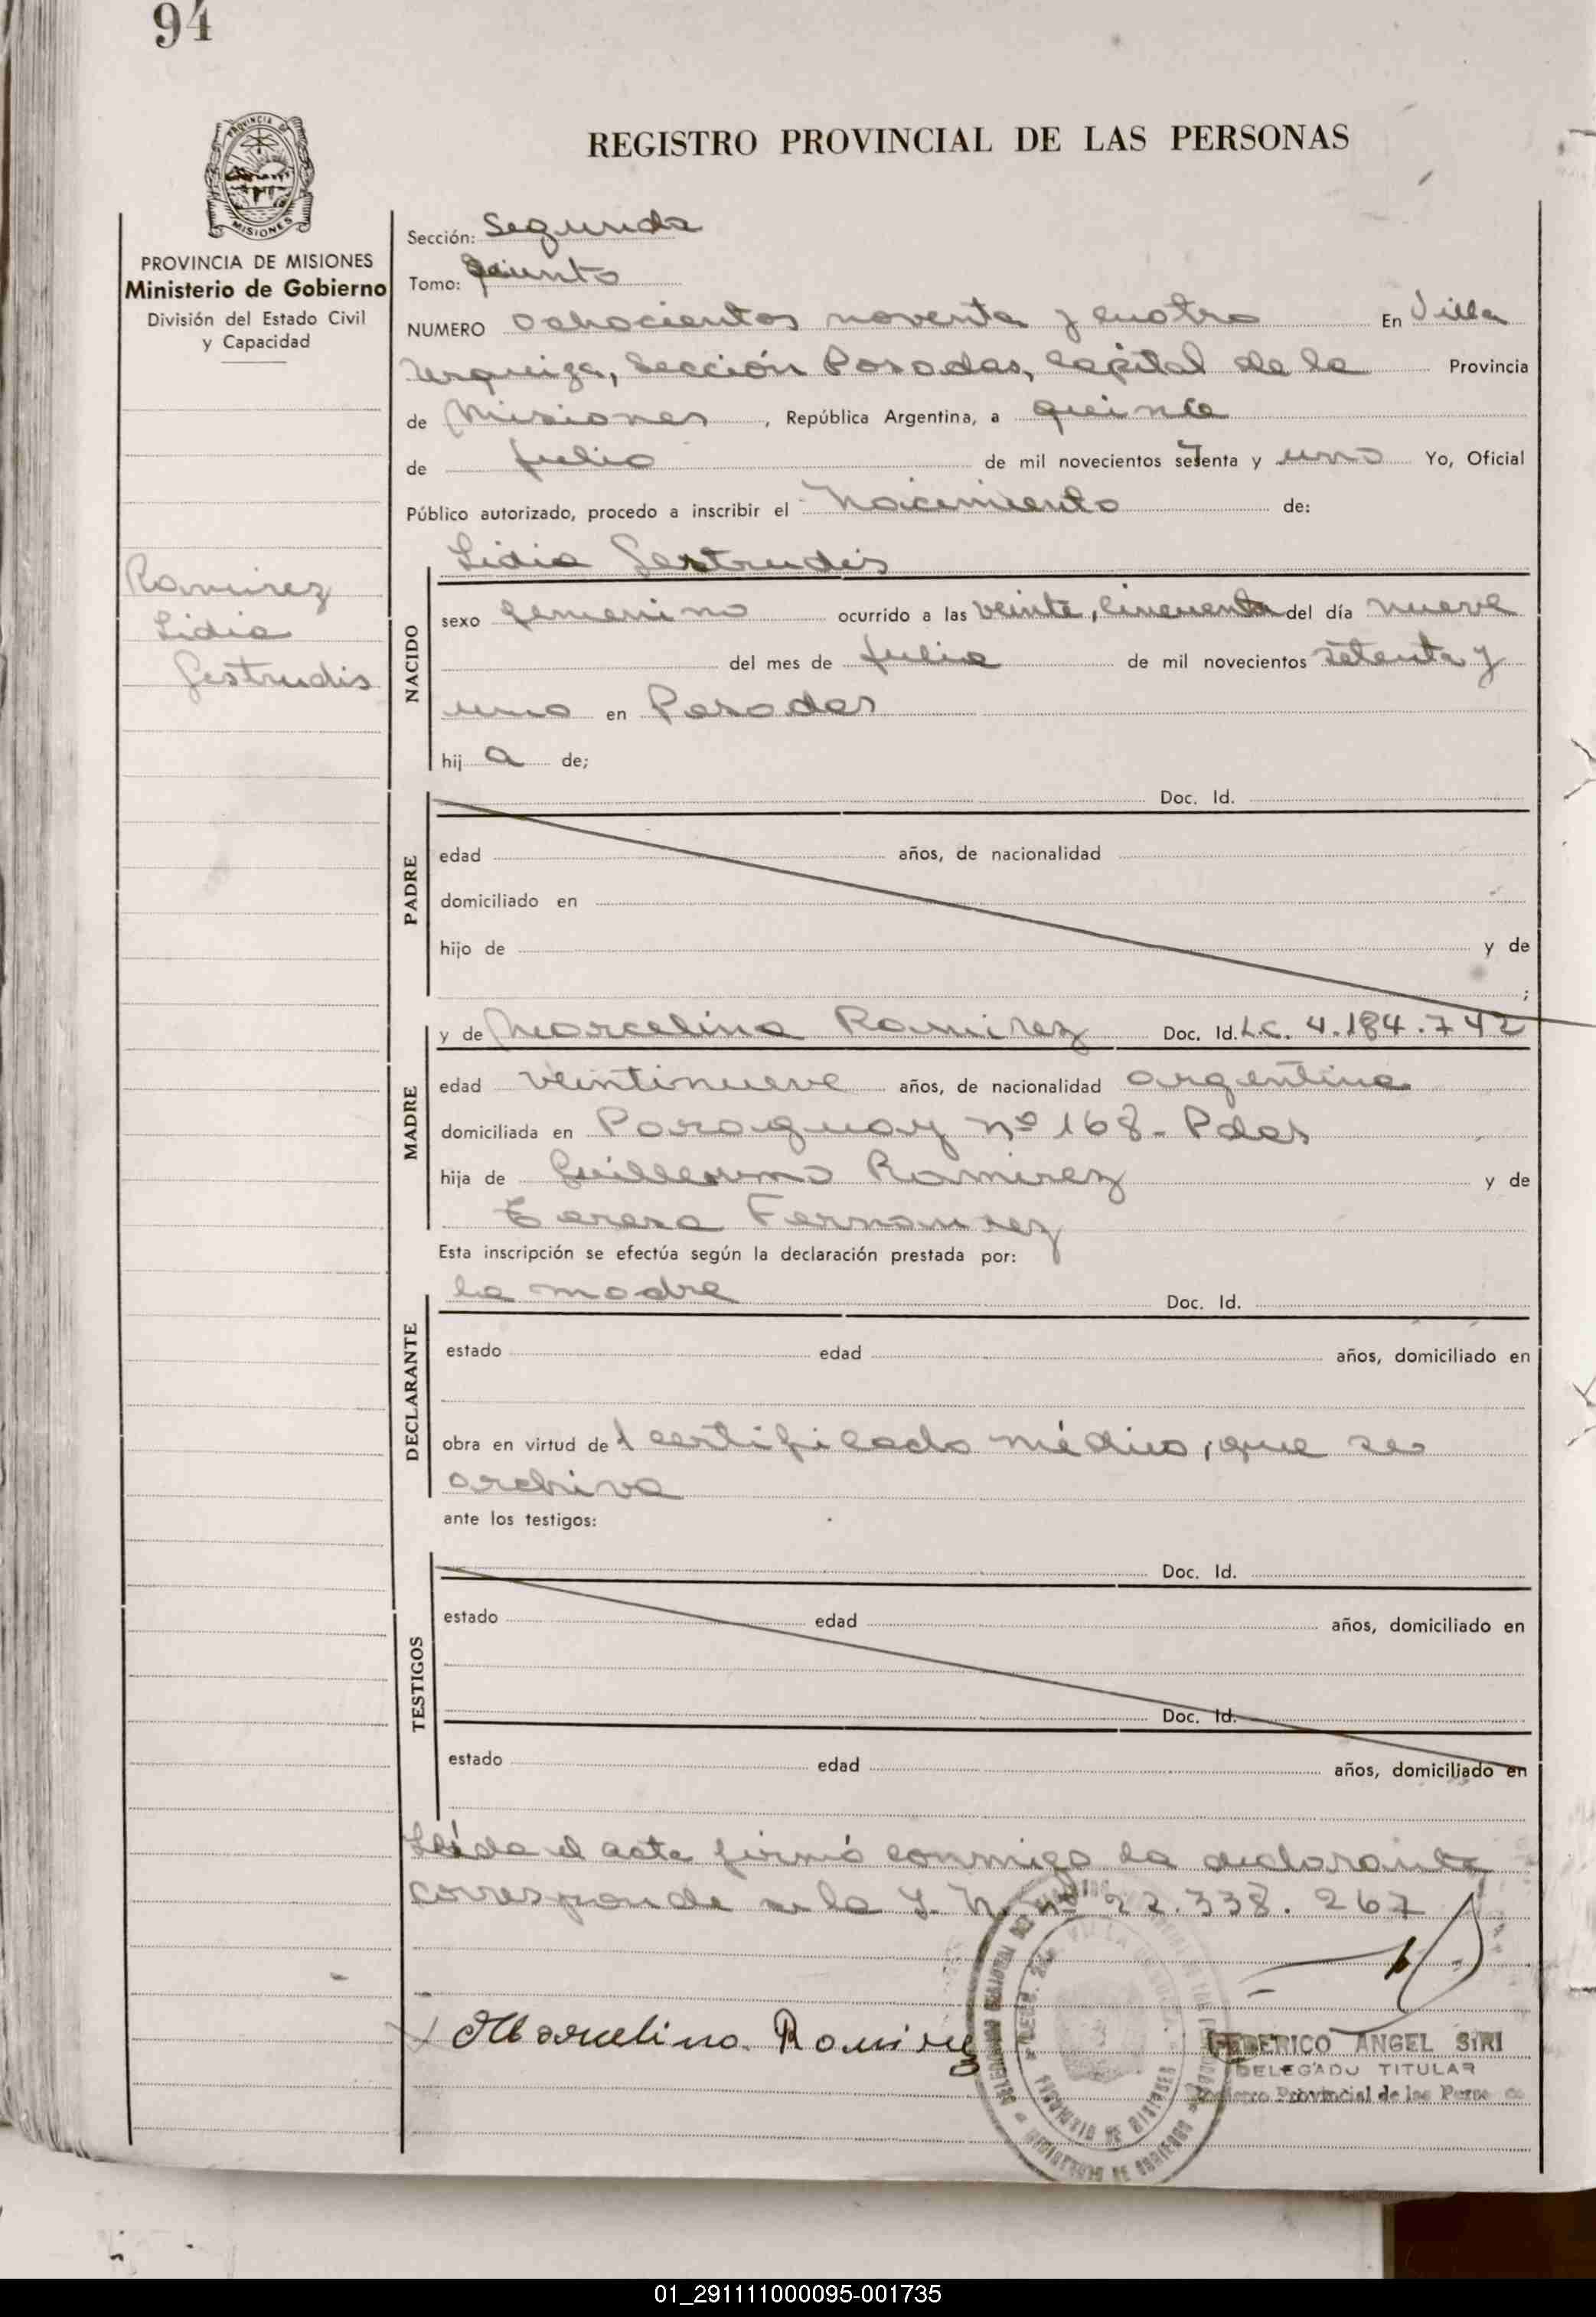 94
PROVINCIA DE
MISIONES
REGISTRO PROVINCIAL DE LAS PERSONAS
PROVINCIA DE MISIONES
Ministerio de Gobierno
División del Estado Civil
y Capacidad
Ramirez
Lidia
Gertrudis
Sección: Segunda
Tomo: Quinto
NUMERO ochocientos noventa y cuatro En Villa
Urquiza, Sección Posadas, Capital de la Provincia
de Misiones, República Argentina, a quince
de Julio de mil novecientos setenta y uno Yo, Oficial
Público autorizado, procedo a inscribir el Nacimiento de:
Lidia Gertrudis
NACIDO
sexo femenino ocurrido a las veinte, cincuenta del día nueve
del mes de Julio de mil novecientos setenta y
uno en Posadas
hij a de;
PADRE
Doc. Id.
edad años, de nacionalidad
domiciliado en
hijo de y de
;
MADRE
y de Marcelina Ramirez Doc. Id. L.C. 4.184.742
edad veintinueve años, de nacionalidad argentina
domiciliada en Paraguay nº 168 - Pdas
hija de Guillermo Ramirez y de
Teresa
Esta inscripción se efectúa según la declaración prestada por:
DECLARANTE
la madre Doc. Id.
estado edad años, domiciliado en
obra en virtud de 1 certificado médico, que se
archiva
ante los testigos:
TESTIGOS
Doc. Id.
estado edad años, domiciliado en
Doc. Id.
estado edad años, domiciliado en
Leída el acta firmó conmigo la declarante
corresponde a la I. N. nº 22.338.267
Marcelina Ramirez
FEDERICO ANGEL SIRI
DELEGADO TITULAR
Registro Provincial de las Personas
PROVINCIA DE MISIONES
MINISTERIO DE GOBIERNO
01_291111000095-001735